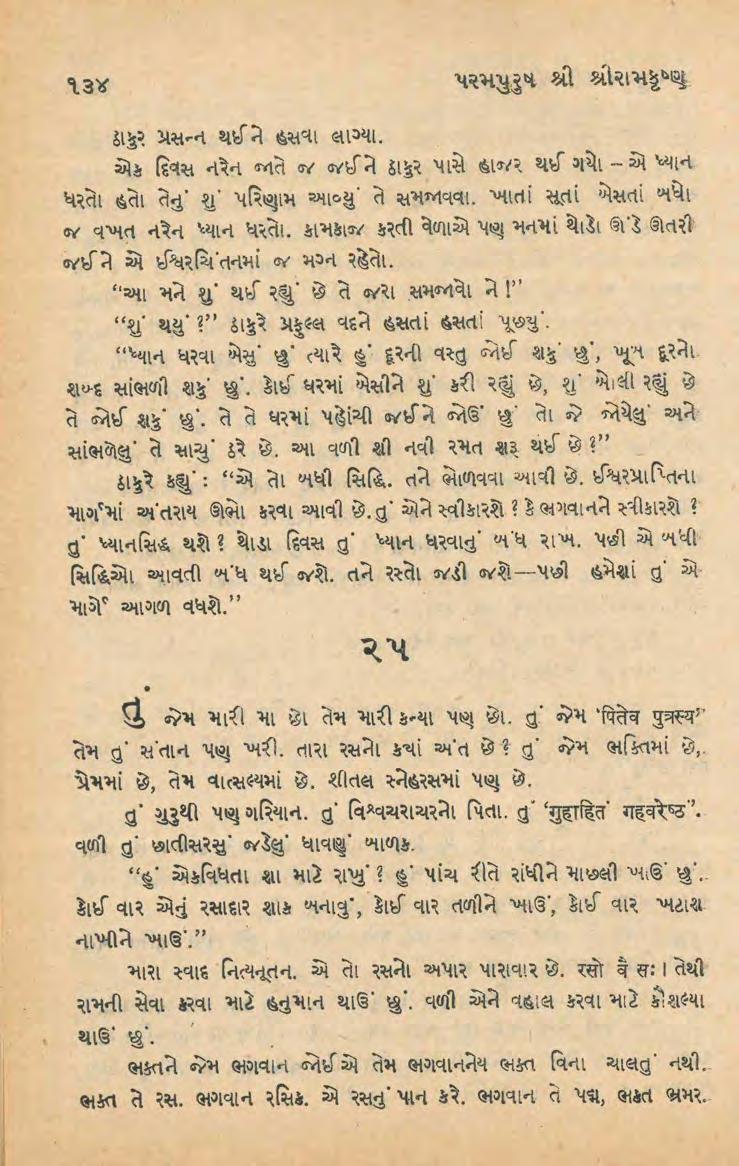 ૧૩૪ પરમપુરુષ શ્રી શ્રીરામકૃષ્ણ
ઠાકુર પ્રસન્ન થઈને હસવા લાગ્યા.
એક દિવસ નરેન જાતે જ જઈને ઠાકુર પાસે હાજર થઈ ગયો – એ ધ્યાન
ધરતો હતો તેનું શું પરિણામ આવ્યું તે સમજાવવા. ખાતાં સૂતાં બેસતાં બધો
જ વખત નરેન ધ્યાન ધરતો. કામકાજ કરતી વેળાએ પણ મનમાં થોડો ઊંડે ઊતરી
જઈને એ ઈશ્વરચિંતનમાં જ મગ્ન રહેતો.
“આ મને શું થઈ રહ્યું છે તે જરા સમજાવો ને !”
“શું થયું ?” ઠાકુરે પ્રફુલ્લ વદને હસતાં હસતાં પૂછયું.
“ધ્યાન ધરવા બેસું છું ત્યારે હું દૂરની વસ્તુ જોઈ શકું છું, ખૂબ દૂરનો
શબ્દ સાંભળી શકું છું. કોઈ ઘરમાં બેસીને શું કરી રહ્યું છે, શું બોલી રહ્યું છે
તે જોઈ શકું છું. તે તે ઘરમાં પહોંચી જઈને જોઉં છું તો જે જોયેલું અને
સાંભળેલું તે સાચું ઠરે છે. આ વળી શી નવી રમત શરૂ થઈ છે ?”
ઠાકુરે કહ્યું : “એ તો બધી સિદ્ધિ. તને ભોળવવા આવી છે. ઈશ્વરપ્રાપ્તિના
માર્ગમાં અંતરાય ઊભો કરવા આવી છે. તું એને સ્વીકારશે ? કે ભગવાનને સ્વીકારશે ?
તું ધ્યાનસિદ્ધ થશે ? થોડા દિવસ તું ધ્યાન ધરવાનું બંધ રાખ. પછી એ બધી
સિદ્ધિઓ આવતી બંધ થઈ જશે. તને રસ્તો જડી જશે—પછી હમેશાં તું એ
માર્ગે આગળ વધશે.”
૨૫
તું જેમ મારી મા છો તેમ મારી કન્યા પણ છો. તું જેમ ‘पितेव पुत्रस्य’’
તેમ તું સંતાન પણ ખરી. તારા રસનો કયાં અંત છે ? તું જેમ ભક્તિમાં છે,
પ્રેમમાં છે, તેમ વાત્સલ્યમાં છે. શીતલ સ્નેહરસમાં પણ છે.
તું ગુરુથી પણ ગરિયાન. તું વિશ્વચરાચરનો પિતા. તું ‘गुहाहितं गह्वरेष्ठ’’.
વળી તું છાતીસરસું જડેલું ધાવણું બાળક.
“હું એકવિધતા શા માટે રાખું ? હું પાંચ રીતે રાંધીને માછલી ખાઉં છું.
કોઈ વાર એનું રસાદાર શાક બનાવું, કોઈ વાર તળીને ખાઉં, કોઈ વાર ખટાશ
નાખીને ખાઉં.”
મારા સ્વાદ નિત્યનૂતન. એ તો રસનો અપાર પારાવાર છે. रसो वै सः। તેથી
રામની સેવા કરવા માટે હનુમાન થાઉં છું. વળી એને વહાલ કરવા માટે કૌશલ્યા
થાઉં છું.
ભક્તને જેમ ભગવાન જોઈએ તેમ ભગવાનનેય ભક્ત વિના ચાલતું નથી.
ભક્ત તે રસ. ભગવાન રસિક. એ રસનું પાન કરે. ભગવાન તે પદ્મ, ભક્ત ભ્રમર.